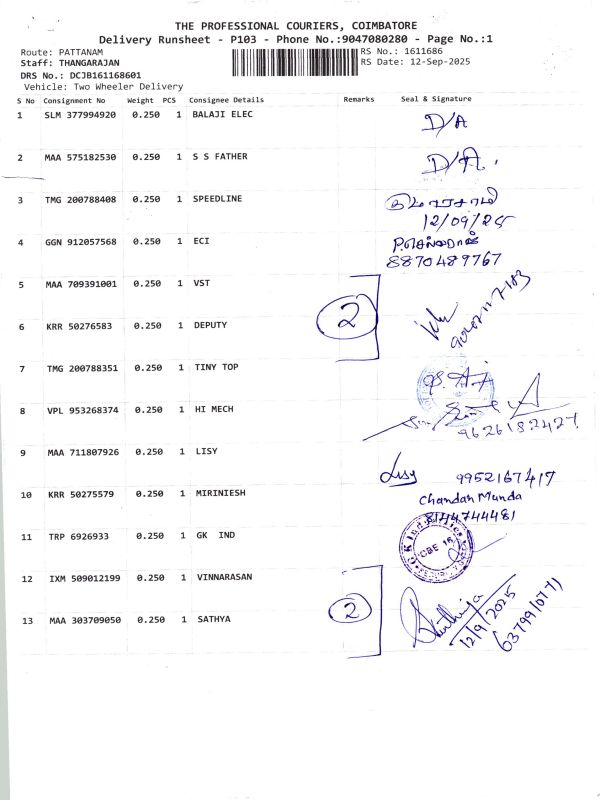 THE PROFESSIONAL COURIERS, COIMBATORE
Delivery Runsheet - P103 - Phone No.:9047080280 - Page No.:1
Route: PATTANAM RS No.: 1611686
Staff: THANGARAJAN RS Date: 12-Sep-2025
DRS No.: DCJB161168601
Vehicle: Two Wheeler Delivery
S No Consignment No Weight PCS Consignee Details Remarks Seal & Signature
1 SLM 377994920 0.250 1 BALAJI ELEC D/A
2 MAA 575182530 0.250 1 S S FATHER D/A.
3 TMG 200788408 0.250 1 SPEEDLINE
12/09/25
4 GGN 912057568 0.250 1 ECI
8870489767
5 MAA 709391001 0.250 1 VST
2
6 KRR 50276583 0.250 1 DEPUTY
7 TMG 200788351 0.250 1 TINY TOP
8 VPL 953268374 0.250 1 HI MECH
9626182427
9 MAA 711807926 0.250 1 LISY Lisy 9952167417
10 KRR 50275579 0.250 1 MIRINIESH Chandan Munda
8144744481
11 TRP 6926933 0.250 1 GK IND
CBE 16
12 IXM 509012199 0.250 1 VINNARASAN
2
13 MAA 303709050 0.250 1 SATHYA
12/9/2025